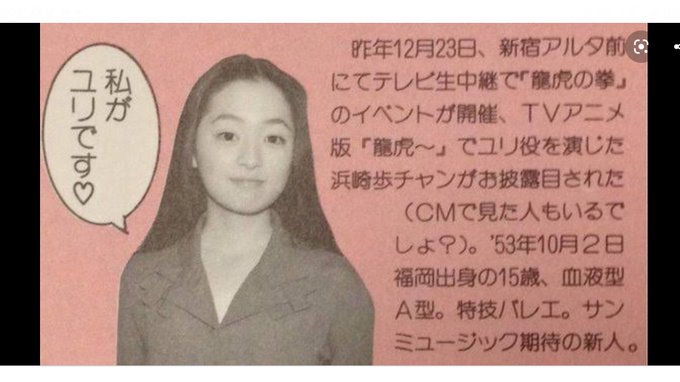 私が
ユリです♡
昨年12月23日、新宿アルタ前
にてテレビ生中継で『龍虎の拳』
のイベントが開催、TVアニメ
版『龍虎〜』でユリ役を演じた
浜崎歩チャンがお披露目された
(CMで見た人もいるで
しょ?)。'53年10月2日
福岡出身の15歳、血液型
A型。特技バレエ。サン
ミュージック期待の新人。